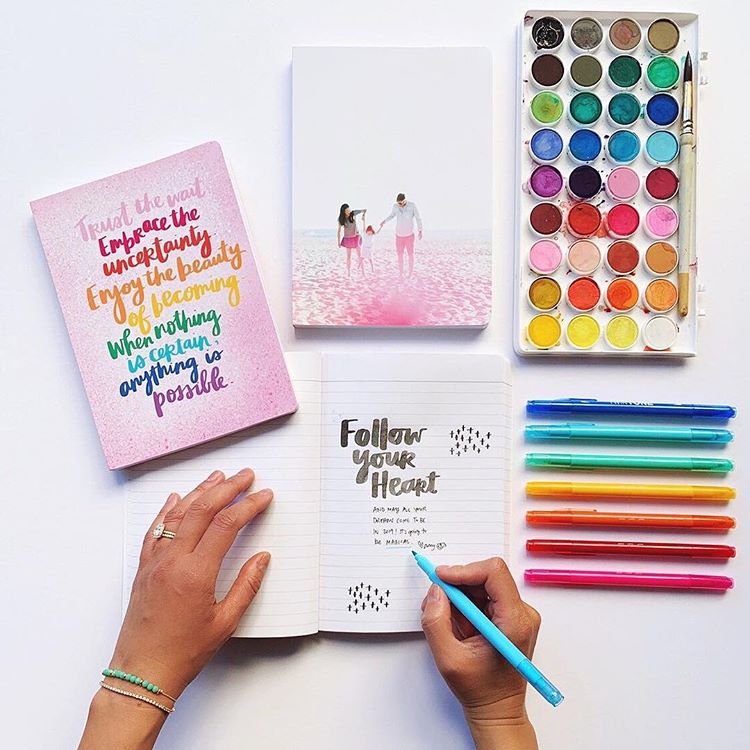 Trust the wait
Embrace the
uncertainty
Enjoy the beauty
of becoming
When nothing
is certain,
anything is
possible.
Follow
your
Heart
AND MAY ALL YOUR
DREAMS COME TO BE
IN 2019! IT'S GOING TO
BE MAGICAL.